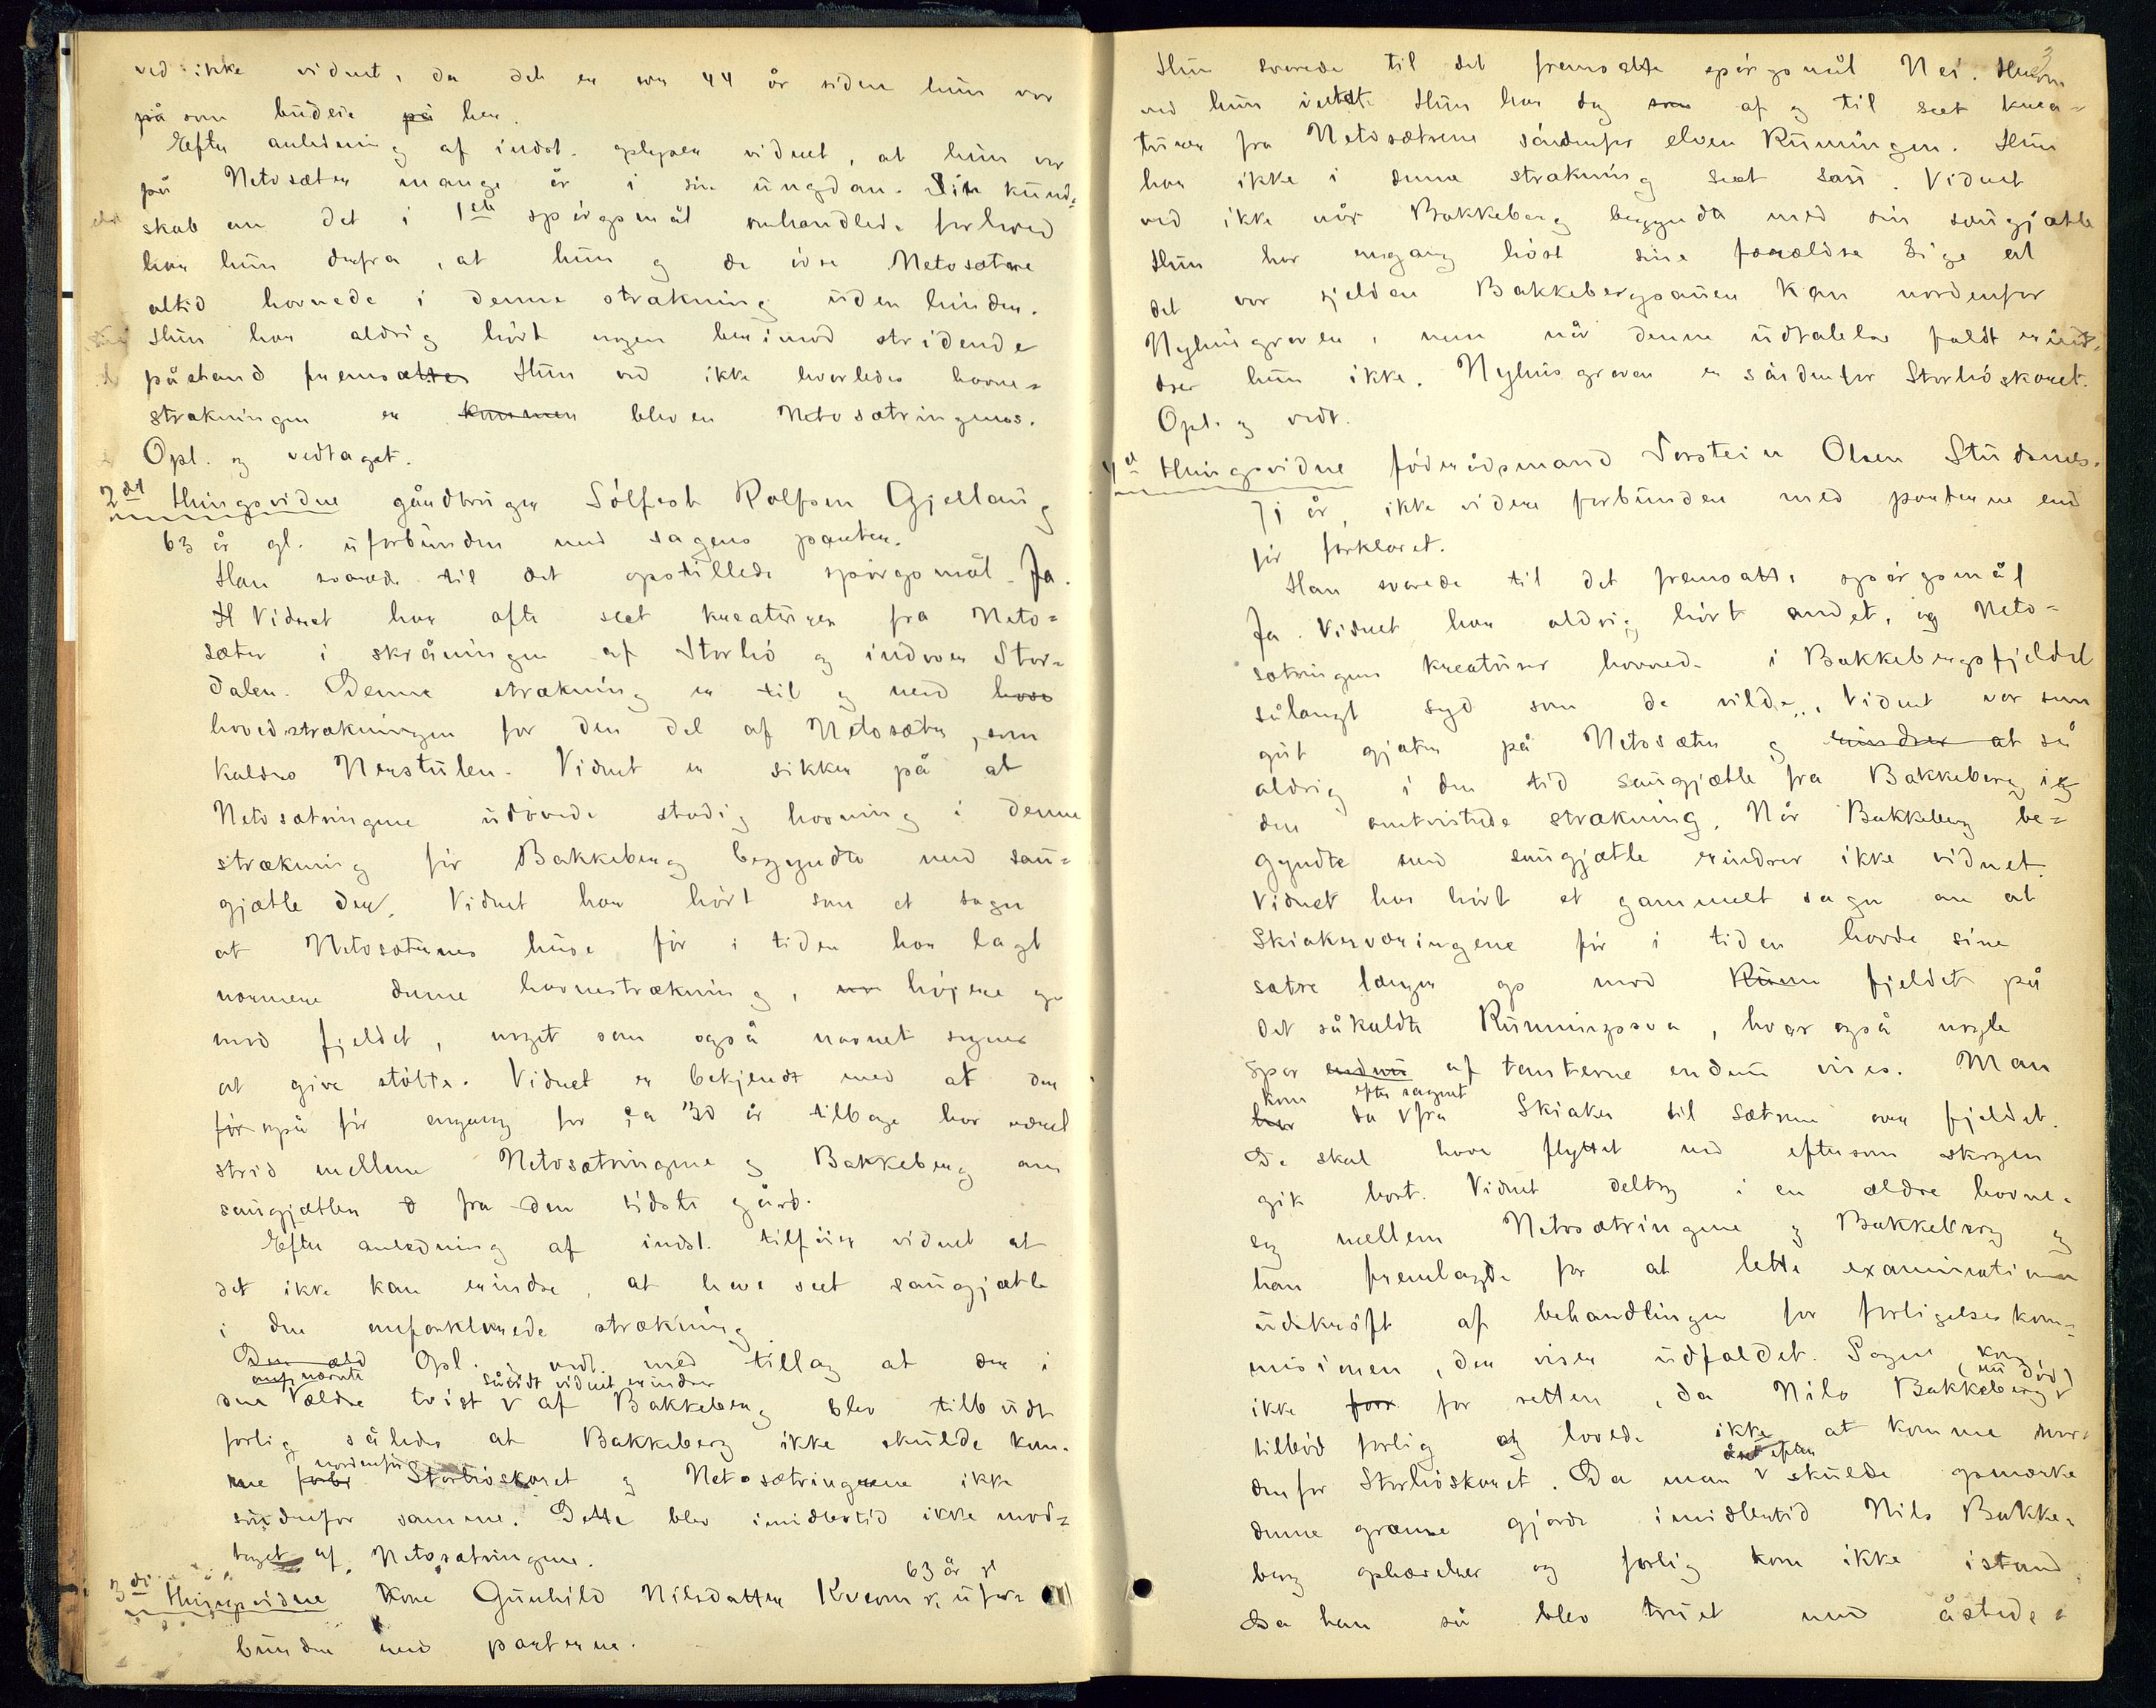 ved ikke vidnet, da det er over 44 år siden hun var
på som budeie på her.
Efter anledning af indst. oplyser vidnet, at hun var
på Netosæter mange år i sin ungdom. Sin kund-
skab om det i 1ste spörgsmål omhandlede forhold
har hun derfra, at hun og de övre Netosætre
altid havnede i denne strækning uden hinder.
Hun har aldrig hört nogen herimod stridende
påstand fremsættes. Hun ved ikke hvorledes havne-
strækningen er kommen bleven Netosætringenes.
Opl. og vedtaget.
2det Hingsvidne gårdbruger Sölfest Rolfsen Gjellaug
63 år gl. uforbunden med sagens parter.
Han svarede til det opstillede spörgsmål Ja.
H Vidnet har ofte seet kreaturer fra Neto-
sæter i skråningen af Storhö og indover Stor-
dalen. Denne strækning er til og med hose
hovedstrækningen for den del af Netosæter, som
kaldes Nerstulen. Vidnet er sikker på at
Netosætringene udövede stadig havning i denne
strækning för Bakkeberg begyndte med sau-
gjætle der. Vidnet har hört som et sagn
at Netosæternes huse för i tiden har lagt
nærmere denne havnestrækning, høiere op
mod fjeldet, noget som også navnet synes
at give stötte. Vidnet er bekjendt med at der
för også för engang for ca 30 år tilbage har været
strid mellem Netosætringene og Bakkeberg om
saugjætlen fra den sidste gård.
Efter anledning af indst. tilföier vidnet at
det ikke kan erindre, at have seet saugjætle
i den omforklarede strækning
Den æld Opl. vedt. med tillæg at der i
omfornævnte såvidt vidnet erindrer
den ældre tvist af Bakkeberg blev tilbudt
forlig således at Bakkeberg ikke skulde kom-
nordenfor
me forbi Storhöskaret og Netosætringerne ikke
söndenfor samme. Dette blev imidlertid ikke mod-
taget af Netosætringene.
63 år gl
3die Hingsvidne Kone Gunhild Nilsdatter Kvarn, ufor-
bunden med parterne.
3
Hun svarede til det fremsatte spörgsmål Nei. Herom
ved hun intet. Hun har dog af og til seet krea-
turer fra Netosætrene söndenfor elven Rünningen. Hun
har ikke i denne strækning seet sau. Vidnet
ved ikke når Bakkeberg begyndte med sin saugjætle
Hun har engang höst sine forældre sige at
det var sjelden Bakkebergsauen kom nordenfor
Nyhusgraven, men når denne udtalelse faldt erin-
drer hun ikke. Nyhusgraven er söndenfor Storhöskaret.
Opl. og vedt.
4de Hingsvidne föderådsmand Torstein Olsen Studsnes.
71 år, ikke videre forbunden med parterne end
för forklaret.
Han svarede til det fremsatte spörgsmål
Ja. Vidnet har aldrig hört andet, og Neto-
sætringens kreaturer havned i Bakkebergsfjeldet
sålangt syd som de vilde. Vidnet var som
gut gjæter på Netosæter og erindrer at så
aldrig i den tid saugjætle fra Bakkeberg i
den omtvistede strækning. Når Bakkeberg be-
gyndte med saugjætle erindrer ikke vidnet.
Vidnet har hört et gammelt sagn om at
Skiakerværingene för i tiden havde sine
sætre længer op mod fjeldet på
det såkaldte Rünningssva, hvor også nogle
spor endnu af tomterne endnu vises. Man
kom efter sagnet
da fra Skiaker til sætrene over fjeldet.
De skal have flyttet ned eftersom skogen
gik bort. Vidnet deltog i en ældre havne-
sag mellem Netosætringene og Bakkeberg og
han fremlagde for at lette examinationen
udskrift af behandlingen for forligelseskom-
misionen, der viser udfaldet. Sagen kom
(nu död)
ikke for for retten, da Nils Bakkeberg
tilböd forlig og lovede ikke at komme nor-
derefter
denfor Storhöskaret. Da man skulde opmærke
denne grænse gjorde imidlertid Nils Bakke-
berg ophævelser og forlig kom ikke istand.
Da han så blev truet med åsteds-